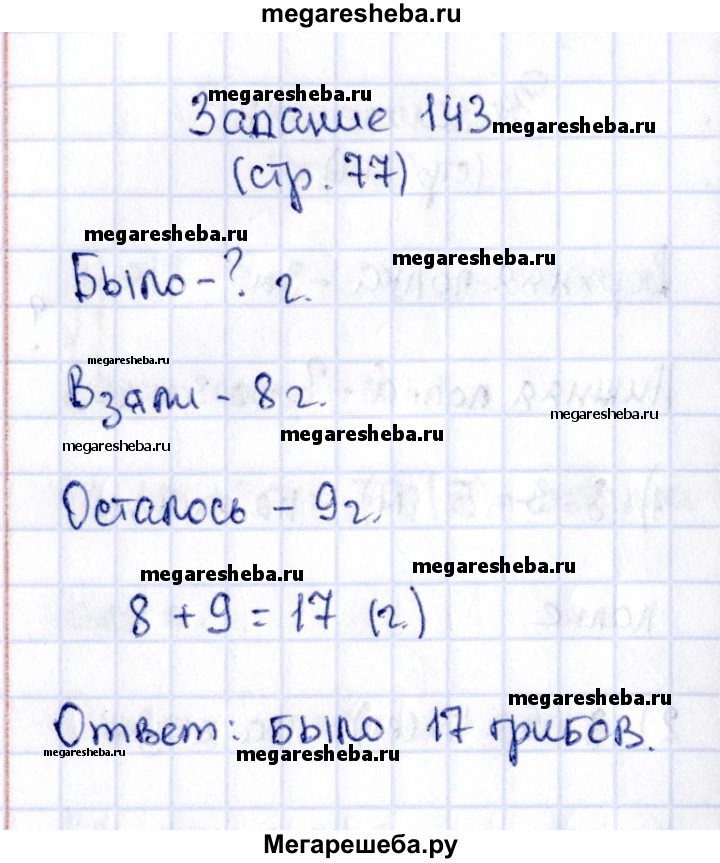 megaresheba.ru
megaresheba.ru
Задание 143 megaresheba.ru
(стр. 77)
megaresheba.ru
megaresheba.ru
Было - ? г.
megaresheba.ru
Взяли - 8 г.
megaresheba.ru
megaresheba.ru
megaresheba.ru
Осталось - 9 г.
megaresheba.ru
megaresheba.ru
8 + 9 = 17 (г.)
megaresheba.ru
Ответ: было 17 грибов.
megaresheba.ru
megaresheba.ru
Мегарешеба.ру